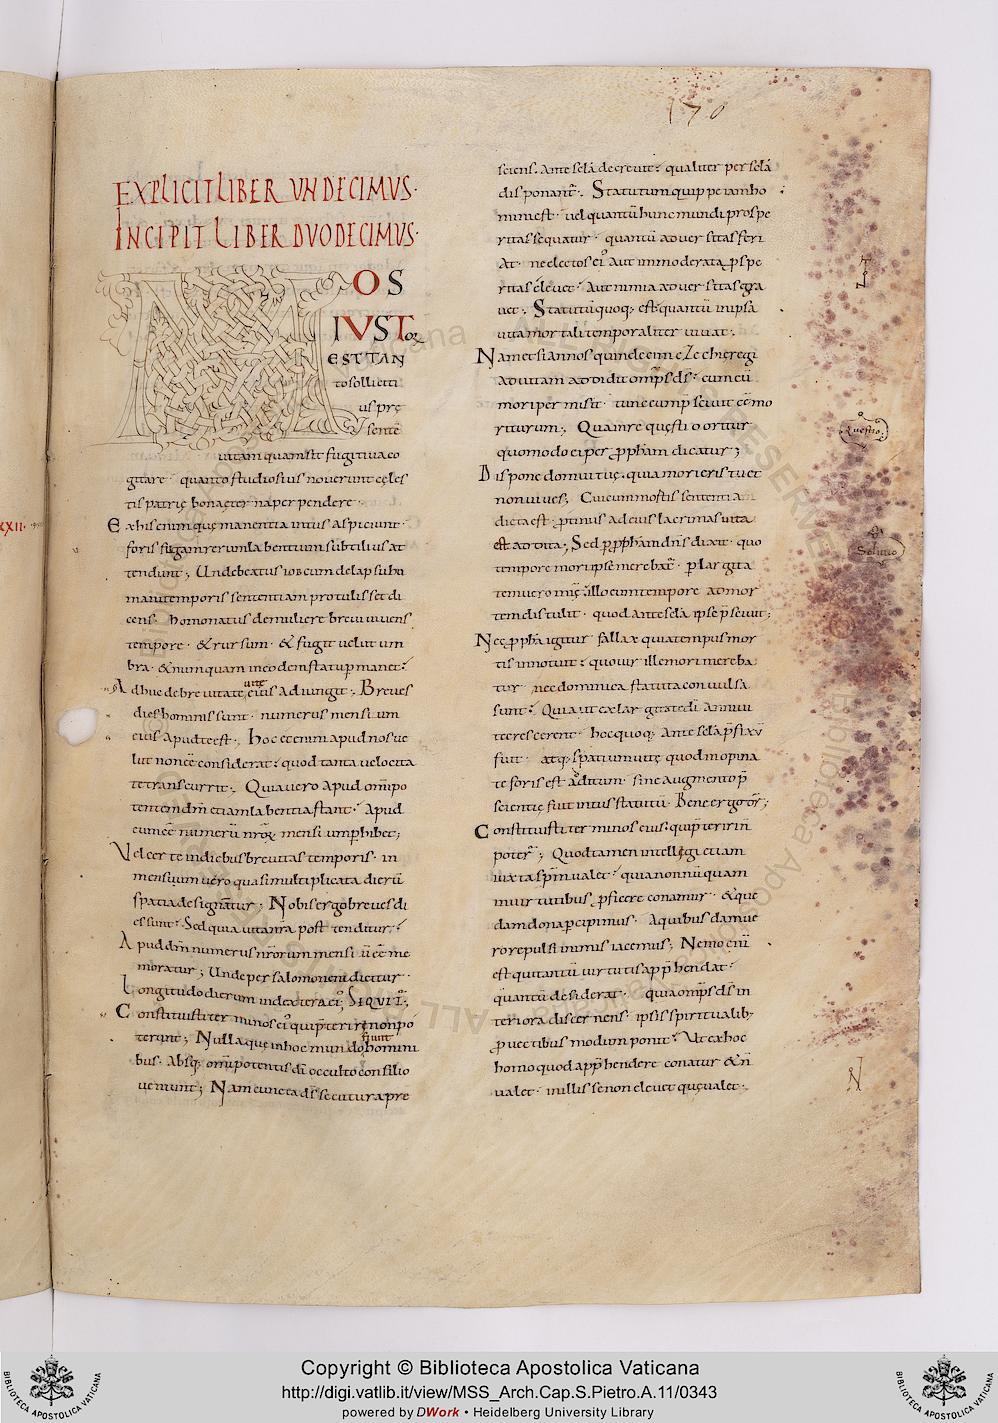 170
EXPLICIT LIBER VNDECIMVS·
INCIPIT LIBER DVODECIMVS·
MOS
IVSTOꝝ
EST TAN
to solliciti
us prę
sentē
uitam quam sit fugitiua co
gitare· quanto studiosius nouerunt cęles
tis patrię bona ęterna perpendere·
Ex his enim quę manentia intus aspiciunt·
foris fugam rerum labentium subtilius at
tendunt; Unde beatus iob cum delapsu hu
mani temporis sententiam protulisset di
cens· homo natus de muliere breui uiuens
tempore· & rursum· & fugit uelut um
bra· & numquam in eodem statu ꝑmanet·
Adhuc de breuitate uitę eius adiungit; Breues
dies hominis sunt· numerus mensium
eius apud te est; Hoc etenim apud nos ue
lut non eē considerat· quod tanta uelocita
te transcurrit; Qua uero apud omīpo
tentem dm̄ etiam labentia stant· Apud
eum eē numerū nr̄oꝝ mensium ꝑhibet;
Vel certe in diebus breuitas temporis· in
mensium uero quasi multiplicata dierū
spatia designantur; Nobis ergo breues di
es sunt· Sed quia uita nr̄a post tenditur·
Apud dm̄ numerus nr̄orum mensiū eē me
moratur; Unde per salomonem dicitur·
Longitudo dierum in dextera ei'; SEQUIT̄;
Constituisti terminos ei' qui ꝑteriri non po
terunt; Nulla quę in hoc mundo hominibus fiunt
bus· absq; omīpotentis dī occulto consilio
ueniunt; Nam cuncta ds̄ secutura prę
sciens· ante sc̄la decreuit· qualiter per sc̄la
disponant̄· Statutum quippe iam ho
mini est· uel quantū hunc mundi prospe
ritas sequatur· quantū aduersitas feri
at· ne electos ei' aut immoderata ꝓspe
ritas eleuet· Aut nimia aduersitas gra
uet· Statutū quoq; est quantū in ipsa
uita mortali temporaliter uiuat·
Nam etsi annos quindecim ezechię regi
ad uitam addidit omīps ds̄· cum eū
mori permisit· tunc eum p̄sciuit eē mo
riturum; Qua in re quęstio oritur
quomodo ei per ꝓph̄am dicatur;
Dispone domui tuę· quia morieris tu et
non uiues; Cui cum mortis sententia
dicta est ꝓtinus ad eius lacrimas uita
est addita; Sed ꝑ ꝓph̄am dn̄s dixit· quo
tempore mori ipse merebat̄· ꝑ largita
tem uero mīę· illo eum tempore ad mor
tem distulit· quod ante sc̄la ipse p̄sciuit;
Nec ꝓph̄a igitur fallax quia tempus mor
tis innotuit· quo uir ille mori mereba
tur· nec dominica statuta conuulsa
sunt· Quia ut ex largitate dī anni ui
te crescerent· hoc quoq; ante sc̄la p̄fixū
fuit· atq; spatium uitę quod inopina
te foris est additum· sine augmento p̄
scientię fuit intus statutū· Bene ergo dr̄;
Constituisti terminos eius· qui p̄teriri n̄
poter̄; Quod tamen intellegi etiam
iuxta sp̄m ualet· quia nonnūquam
in uirtutibus ꝓficere conamur· & quę
dam dona percipimus· A quibusdam ue
ro repulsi in imis iacemus; Nemo enī
est qui tantū uirtutis app̄hendat·
quantū desiderat· quia omīps ds̄ in
teriora discernens· ipsis spiritualib;
ꝓuectibus modum ponit· Ut ex hoc
homo quod app̄hendere conatur & n̄
ualet· in illis se non eleuet quę ualet·
Questio
Solutio
Copyright © Biblioteca Apostolica Vaticana
http://digi.vatlib.it/view/MSS_Arch.Cap.S.Pietro.A.11/0343
powered by DWork • Heidelberg University Library
BIBLIOTECA APOSTOLICA VATICANA
BIBLIOTECA APOSTOLICA VATICANA